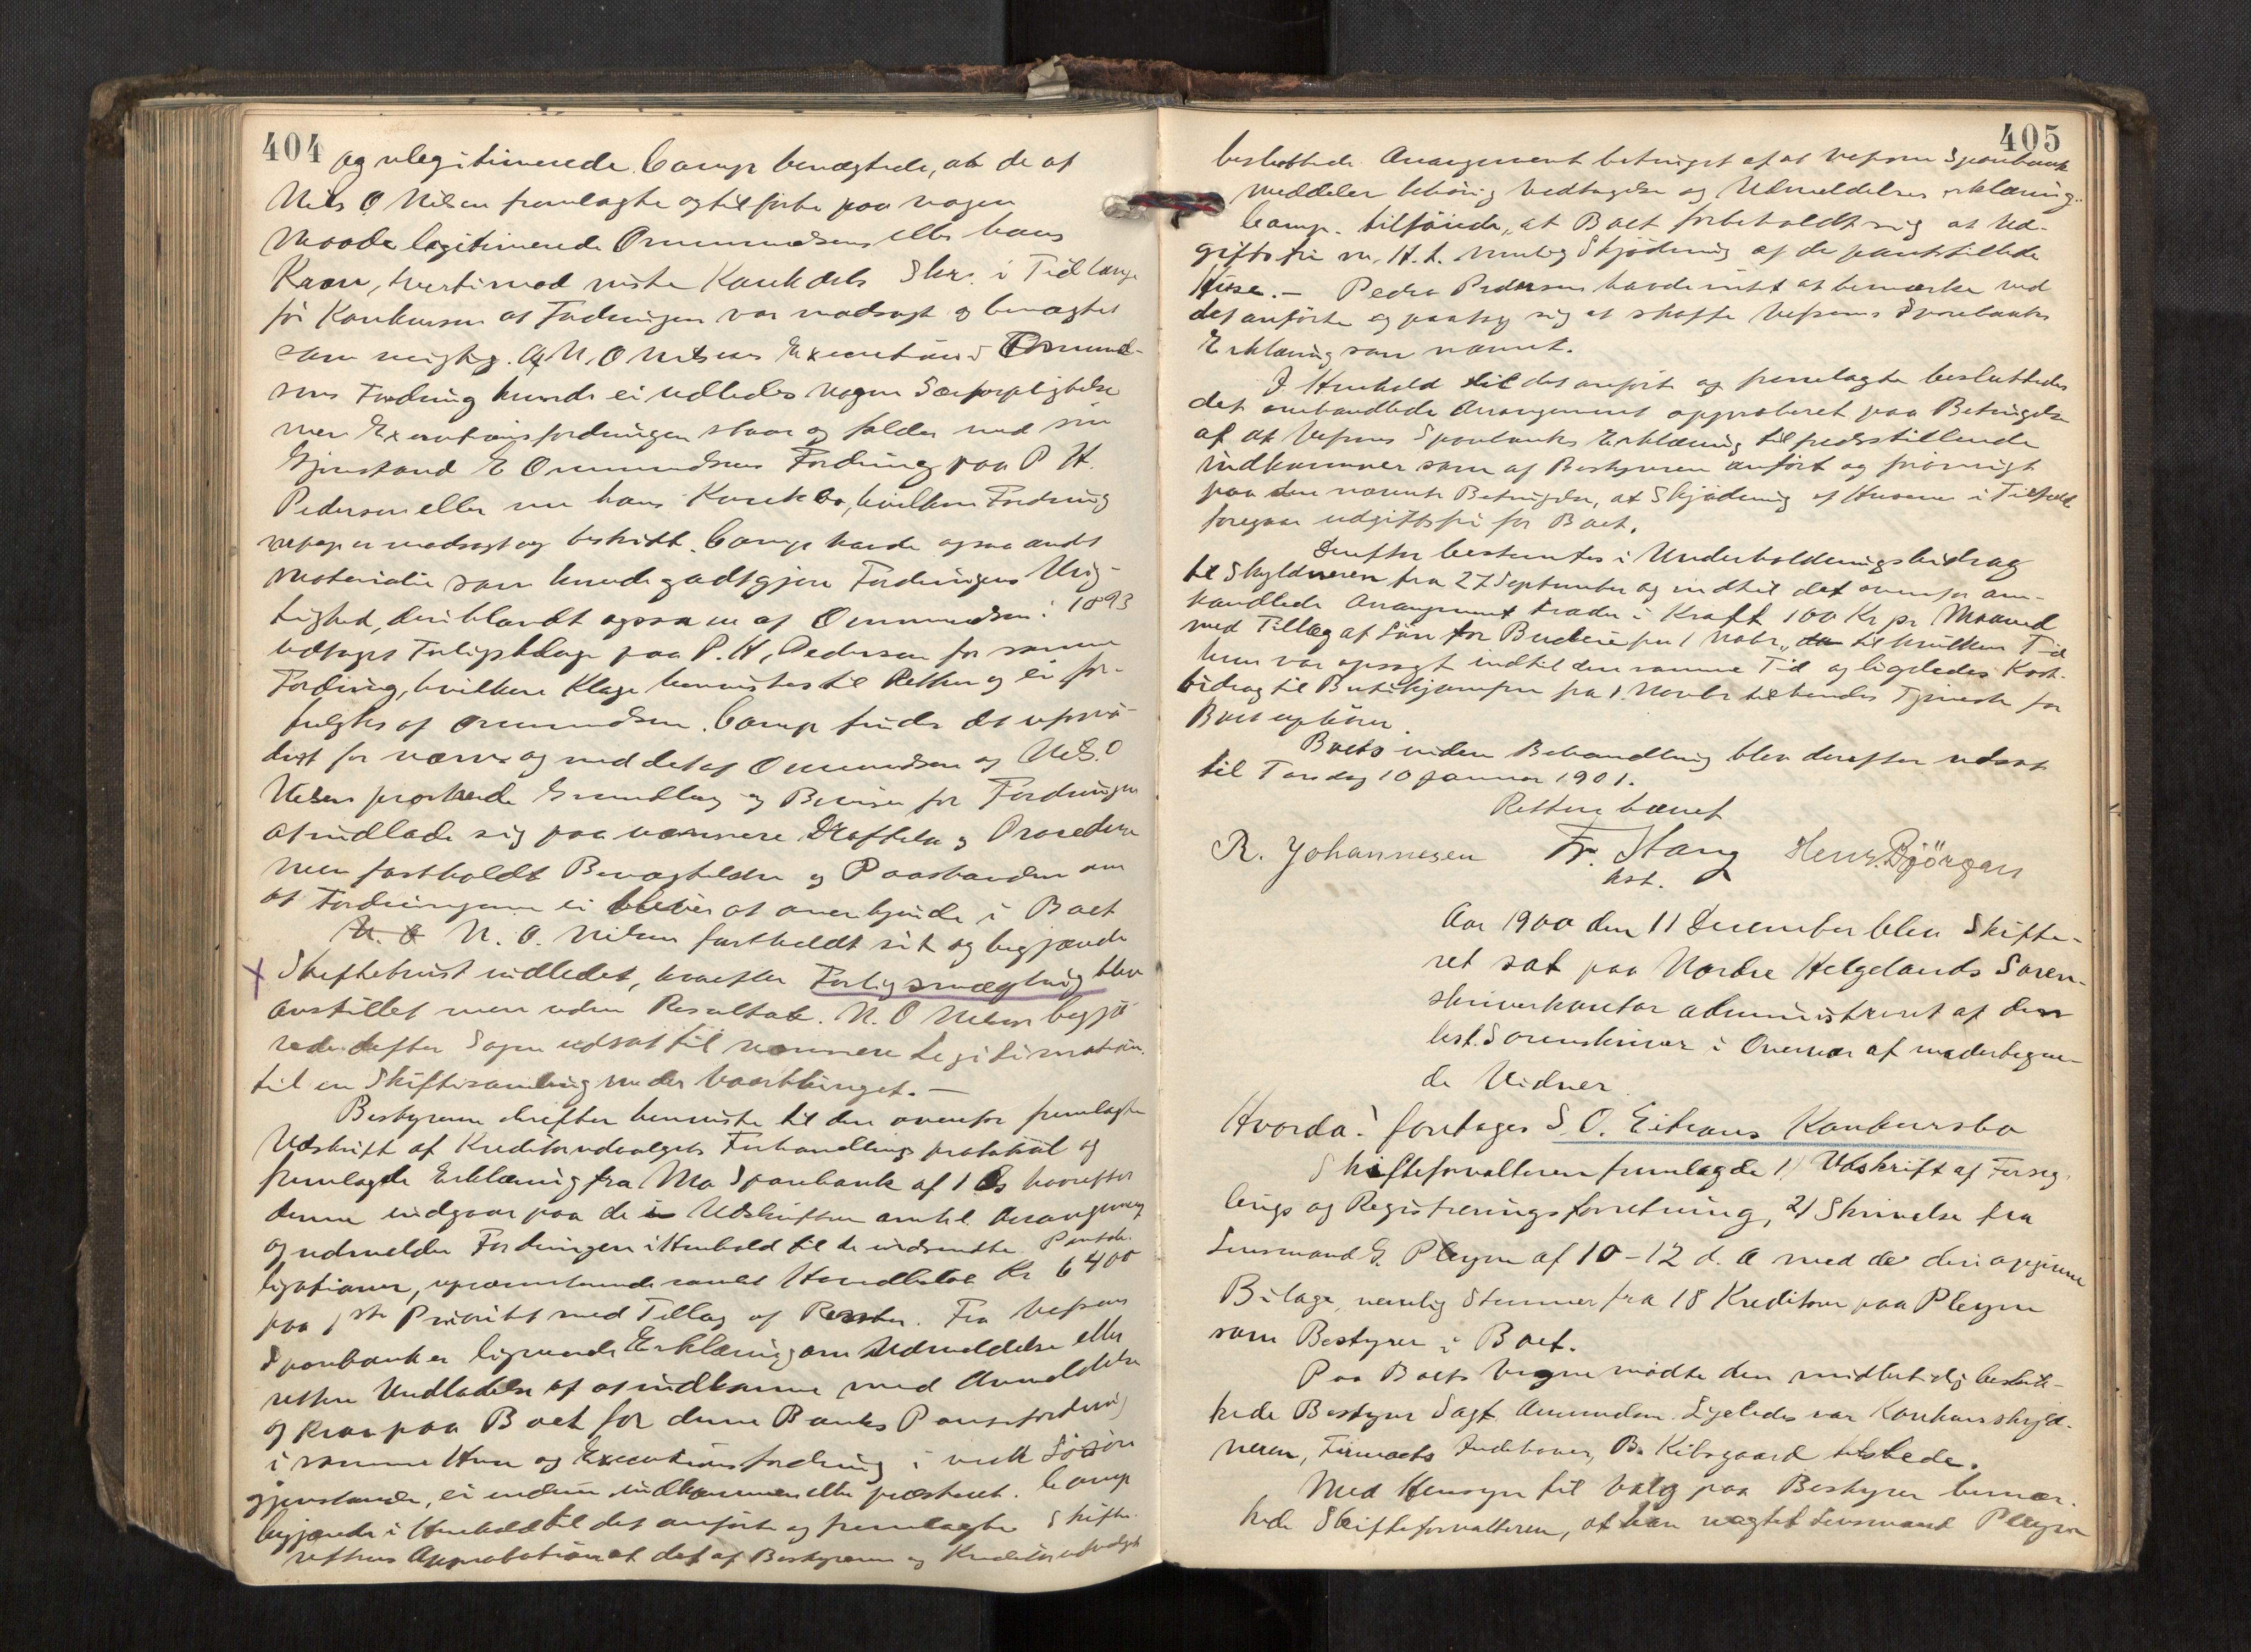 404
og ulegitimerede. Comp benægtede, at de af
Nils O Nilsen fremlagte og tilførte paa nogen
Maade legitimerede Ommundsens eller hans
Krav, tvertimod viste Konkdebs Skr. i Tid længe
før Konkursen at Fordringen var modsagt og benægtet
som urigtig. Af N. O Nilsens Execution i Ommund-
sens Fordring kunde ei udledes nogen Særforpligtelse
men Executionsfordringen staar og falder med sin
Gjenstand E Ommundsens Fordring paa P H.
Pedersen eller nu hans Konkbo, hvilken Fordring
netop er modsagt og bestridt. Comp havde ogsaa andt
Materiale som kunde godtgjøre Fordringens Urig-
tighed, deriblandt ogsaa en af Ommundsen i 1893
udtaget Forligsklage paa P. H. Pedersen for samme
Fordring, hvilken Klage henvistes til Retten og ei for-
fulgtes af Ommundsen. Comp finder det ufornø-
dent for nærv og med det af Ommundsen og Nils. O
Nilsen præsterede Grundlag og Beviser for Fordringen
at indlade sig paa nærmere Drøftelse og Procedure
men fastholdt Benægtelsen og Paastanden om
at Fordringerne ei bliver at anerkjende i Boet
N. O N. O. Nilsen fastholdt sit og begjærede
x Skiftetvist indledet, hvorefter Forligsmægling blev
anstillet men uden Resultat. N. O Nilsen begjæ-
rede derefter Sagen udsat til nærmere Legitimation
til en Skiftesamling under Vaartinget. –
Bestyreren derefter henviste til den ovenfor fremlagte
Udskrift af Kreditorudvalgets Forhandlingsprotokol og
fremlagde Erklæring fra Mo Sparebank af 1 ds hvorefter
denne indgaar paa de i Udskriften omhl. Arrangement
og udmelder Fordringen i Henhold til de indsendte Pantob-
ligationer, oprindelige samlet Hovedbeløb Kr 6400
paa 1ste Prioritet med Tillæg af Renter. Fra Vefsens
Sparebank er lignende Erklæring om Udmeldelse eller
rettere Undladelse af at indkomme med Anmeldelse
og Krav paa Boet for denne Banks Pantefordring
i samme Huse og Executionsfordring i endl Løsøre
gjenstande, ei endnu indkommen eller præsteret. Comp
begjærede i Henhold til det anførte og fremlagte Skifte-
rettens Approbation at det af Bestyreren og Kreditorudvalget
405
besluttede Arrangement betinget af at Vefsens Sparebank
meddeler behørig Vedtagelse og Udmeldelses erklæring.
Comp. tilføiede, at Boet forbeholdt sig at Ud-
giftsfri m. H. t. mulig Skjødning af de pantstillede
Huse. – Pedro Pedersen havde intet at bemærke ved
det anførte og paatog sig at skaffe Vefsens Sparebanks
Erklæring som nævnt.
I Henhold til det anført og fremlagte besluttedes
det omhandlede Arrangement approberet paa Betingelse
af at Vefsens Sparebanks Erklæring tilfredsstillende
indkommer som af Bestyreren anført og forøvrigt
paa den nævnte Betingelse, at Skjødning af Husene i Tilfælde
foregaar udgiftsfri for Boet.
Derefter bestemtes i Underholdningsbidrag
til Skyldneren fra 27 September og indtil det ovenfor om-
handlede Arrangement træder i Kraft 100 Kr pr Maaned
med Tillæg af Løn for Budeie fra 1 Novbr., da til hvilken Tid
hun var opsagt indtil den samme Tid og ligeledes Kost-
bidrag til Butikjomfru fra 1. Novbr til hendes Tjeneste for
Boet ophører.
Boets videre Behandling blev derefter udsat
til Torsdag 10 Januar 1901.
Retten hævet
R. Johannesen Fr. Stang Henr. Bjørgan
kst.
Aar 1900 den 11 December blev Skifte-
ret sat paa Nordre Helgelands Soren-
skriverkontor administreret af den
kst. Sorenskriver i Overvær af undertegne-
de Vidner
Hvorda: foretoges S. O. Eitrans Konkursbo
Skifteforvalteren fremlagde 1/ Udskrift af Forseg-
lings og Registreringsforretning, 2/ Skrivelse fra
Lensmand E. Pleym af 10-12 d. A med de deri opgivne
Bilage, nemlig Stemmer fra 18 Kreditorer paa Pleym
som Bestyrer i Boet.
Paa Boets Vegne mødte den midlertidig beskik-
kede Bestyrer Sagf. Amundsen. Ligeledes var Konkursskyld-
neren, Firmaets Indehaver, B. Kibsgaard tilstede.
Med Hensyn til Valg paa Bestyrer bemær-
kede Skifteforvalteren, at han vægtet Lensmand Pleym